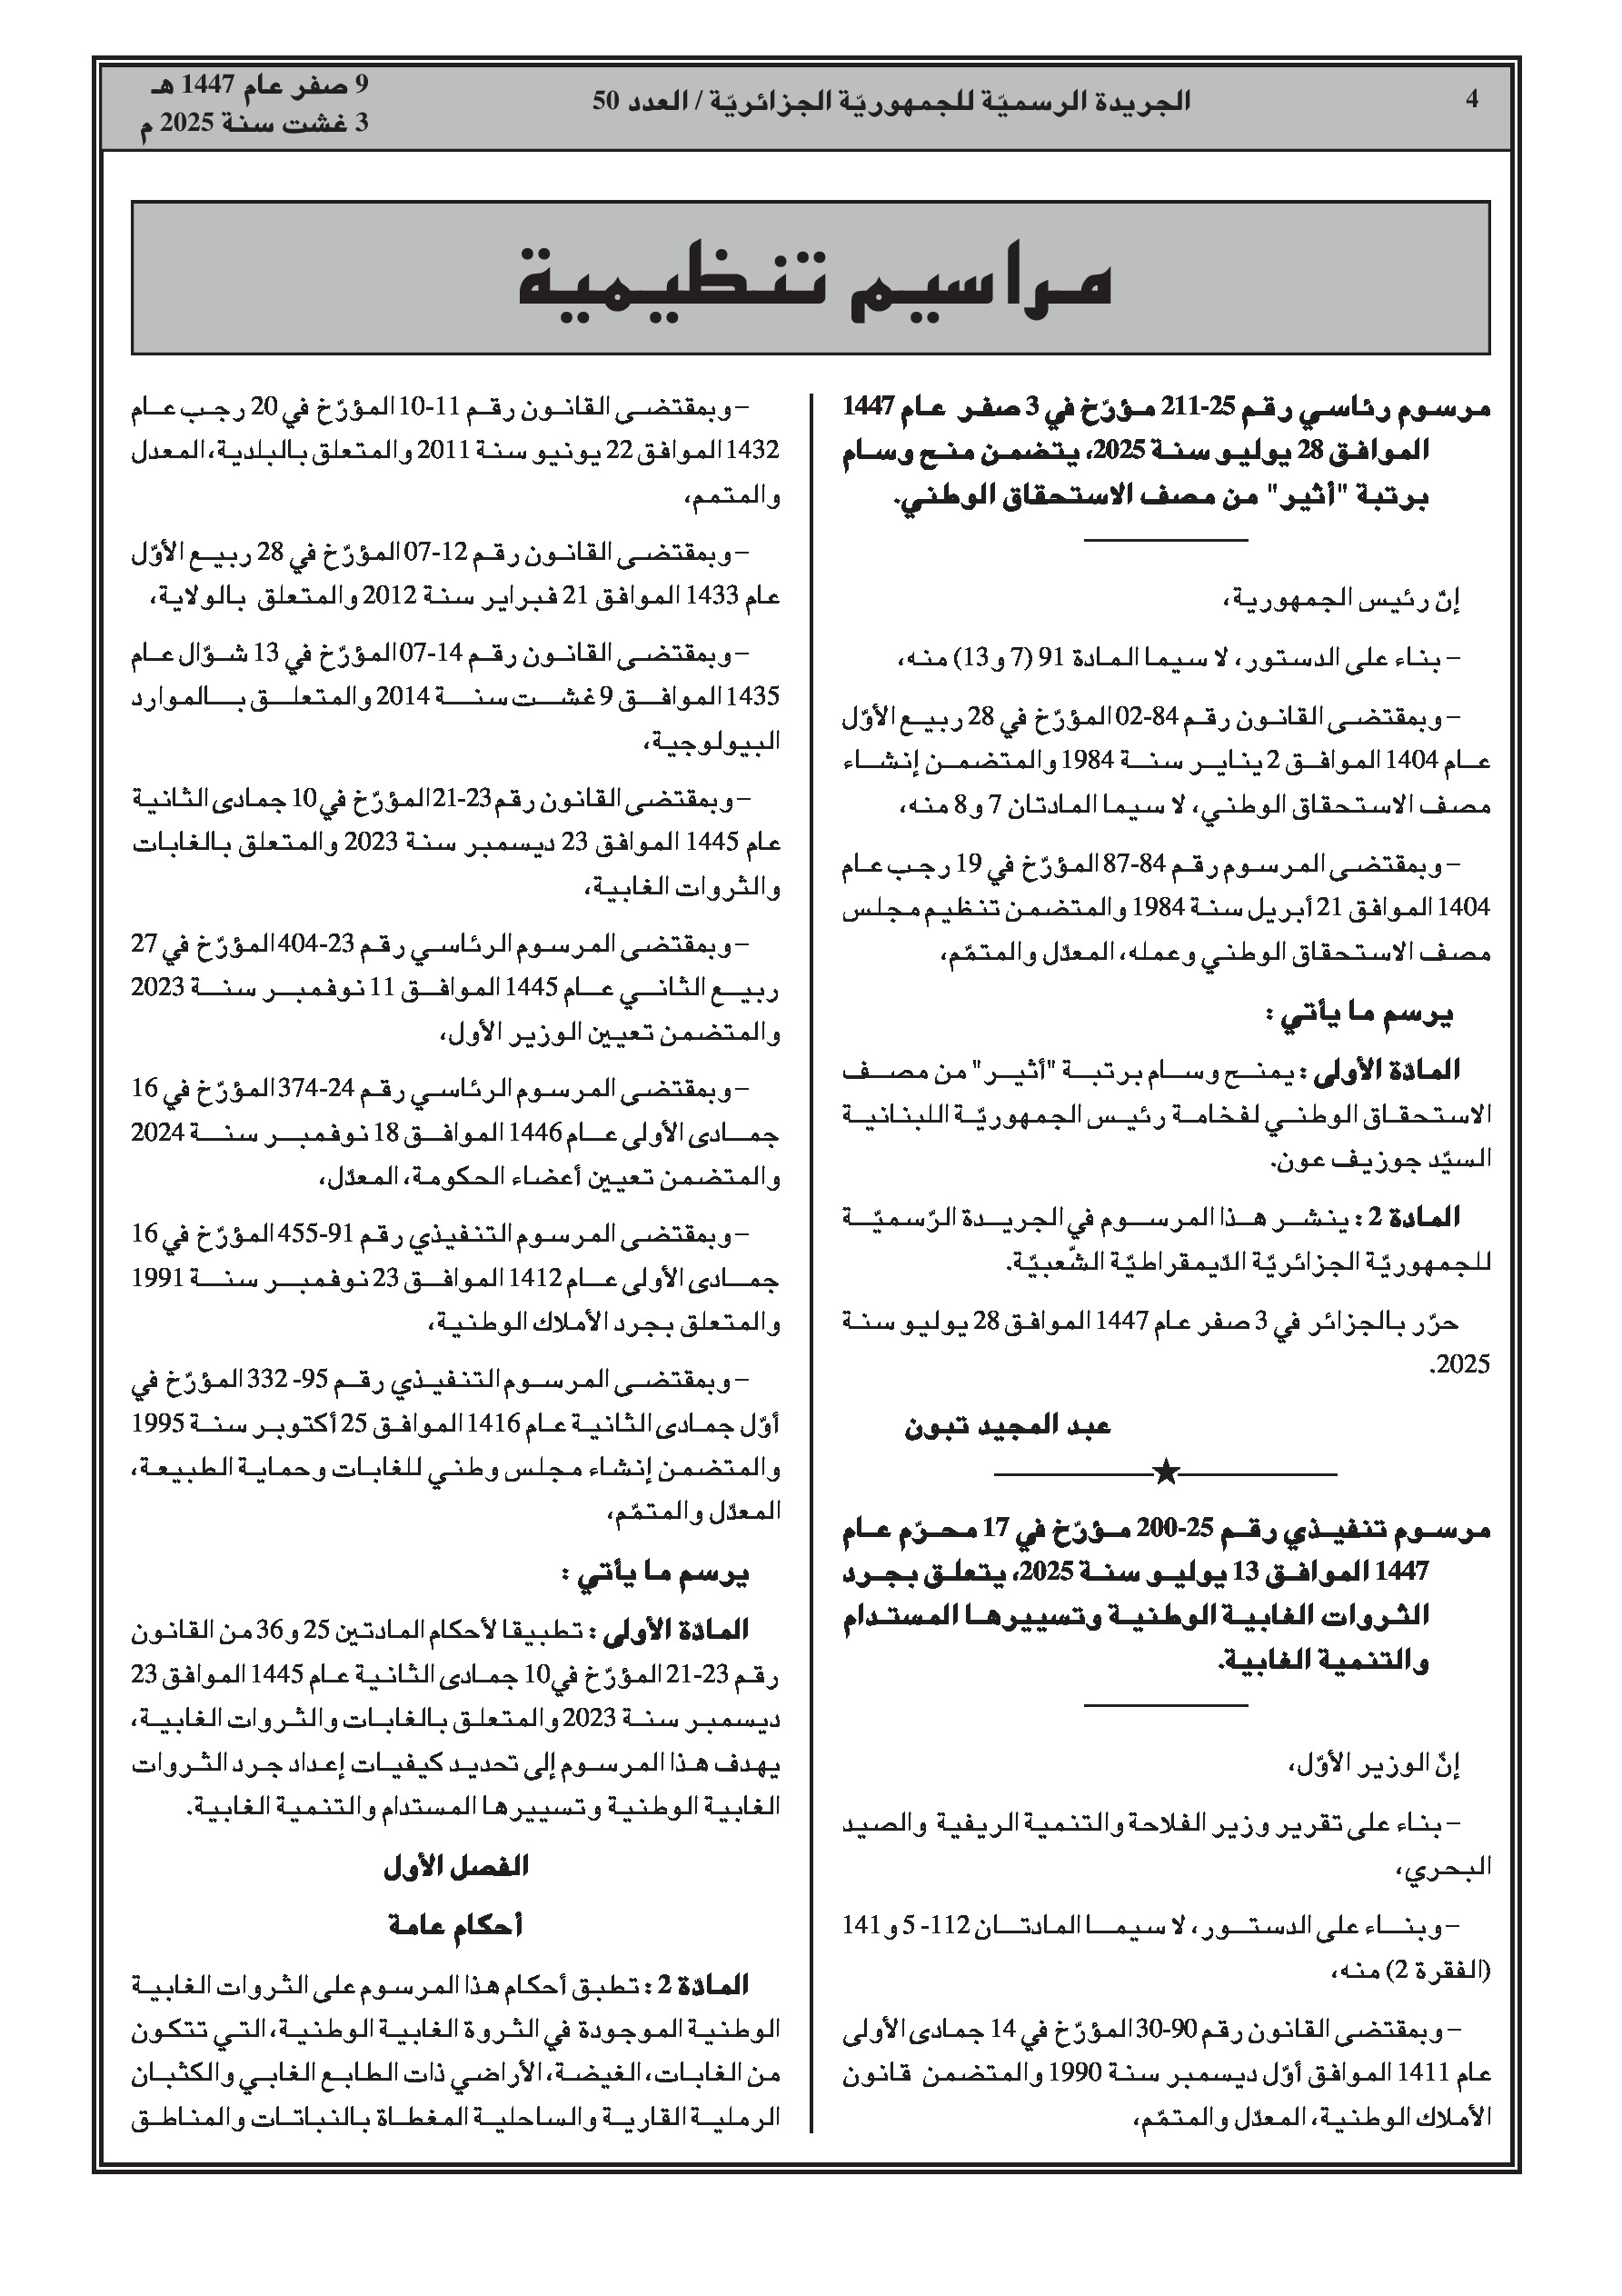 4
الجريدة الرسميّة للجمهوريّة الجزائريّة / العدد 50
9 صفر عام 1447 هـ
3 غشت سنة 2025 م
مراسيم تنظيمية
مرسوم رئاسي رقم 25-211 مؤرّخ في 3 صفر عام 1447
الموافق 28 يوليو سنة 2025، يتضمن منح وسام
برتبة "أثير" من مصف الاستحقاق الوطني.
إنّ رئيس الجمهورية،
– بناء على الدستور، لا سيما المادة 91 (7 و13) منه،
– وبمقتضى القانون رقم 84-02 المؤرّخ في 28 ربيع الأوّل
عام 1404 الموافق 2 يناير سنة 1984 والمتضمن إنشاء
مصف الاستحقاق الوطني، لا سيما المادتان 7 و8 منه،
– وبمقتضى المرسوم رقم 84-87 المؤرّخ في 19 رجب عام
1404 الموافق 21 أبريل سنة 1984 والمتضمن تنظيم مجلس
مصف الاستحقاق الوطني وعمله، المعدّل والمتمّم،
يرسم ما يأتي :
المادّة الأولى : يمنح وسام برتبة "أثير" من مصف
الاستحقاق الوطني لفخامة رئيس الجمهوريّة اللبنانية
السيّد جوزيف عون.
المادة 2 : ينشر هذا المرسوم في الجريدة الرّسميّة
للجمهوريّة الجزائريّة الدّيمقراطيّة الشّعبيّة.
حرّر بالجزائر في 3 صفر عام 1447 الموافق 28 يوليو سنة
2025.
عبد المجيد تبون
مرسوم تنفيذي رقم 25-200 مؤرّخ في 17 محرّم عام
1447 الموافق 13 يوليو سنة 2025، يتعلق بجرد
الثروات الغابية الوطنية وتسييرها المستدام
والتنمية الغابية.
إنّ الوزير الأوّل،
– بناء على تقرير وزير الفلاحة والتنمية الريفية والصيد
البحري،
– وبناء على الدستور، لا سيما المادتان 112- 5 و141
(الفقرة 2) منه،
– وبمقتضى القانون رقم 90-30 المؤرّخ في 14 جمادى الأولى
عام 1411 الموافق أوّل ديسمبر سنة 1990 والمتضمن قانون
الأملاك الوطنية، المعدّل والمتمّم،
– وبمقتضى القانون رقم 11-10 المؤرّخ في 20 رجب عام
1432 الموافق 22 يونيو سنة 2011 والمتعلق بالبلدية، المعدل
والمتمم،
– وبمقتضى القانون رقم 12-07 المؤرّخ في 28 ربيع الأوّل
عام 1433 الموافق 21 فبراير سنة 2012 والمتعلق بالولاية،
– وبمقتضى القانون رقم 14-07 المؤرّخ في 13 شوّال عام
1435 الموافق 9 غشت سنة 2014 والمتعلق بالموارد
البيولوجية،
– وبمقتضى القانون رقم 23-21 المؤرّخ في 10 جمادى الثانية
عام 1445 الموافق 23 ديسمبر سنة 2023 والمتعلق بالغابات
والثروات الغابية،
– وبمقتضى المرسوم الرئاسي رقم 23-404 المؤرّخ في 27
ربيع الثاني عام 1445 الموافق 11 نوفمبر سنة 2023
والمتضمن تعيين الوزير الأول،
– وبمقتضى المرسوم الرئاسي رقم 24-374 المؤرّخ في 16
جمادى الأولى عام 1446 الموافق 18 نوفمبر سنة 2024
والمتضمن تعيين أعضاء الحكومة، المعدّل،
– وبمقتضى المرسوم التنفيذي رقم 91-455 المؤرّخ في 16
جمادى الأولى عام 1412 الموافق 23 نوفمبر سنة 1991
والمتعلق بجرد الأملاك الوطنية،
– وبمقتضى المرسوم التنفيذي رقم 95- 332 المؤرّخ في
أوّل جمادى الثانية عام 1416 الموافق 25 أكتوبر سنة 1995
والمتضمن إنشاء مجلس وطني للغابات وحماية الطبيعة،
المعدّل والمتمّم،
يرسم ما يأتي :
المادّة الأولى : تطبيقا لأحكام المادتين 25 و36 من القانون
رقم 23-21 المؤرّخ في10 جمادى الثانية عام 1445 الموافق 23
ديسمبر سنة 2023 والمتعلق بالغابات والثروات الغابية،
يهدف هذا المرسوم إلى تحديد كيفيات إعداد جرد الثروات
الغابية الوطنية وتسييرها المستدام والتنمية الغابية.
الفصل الأول
أحكام عامة
المادّة 2 : تطبق أحكام هذا المرسوم على الثروات الغابية
الوطنية الموجودة في الثروة الغابية الوطنية، التي تتكون
من الغابات، الغيضة، الأراضي ذات الطابع الغابي والكثبان
الرملية القارية والساحلية المغطاة بالنباتات والمناطق